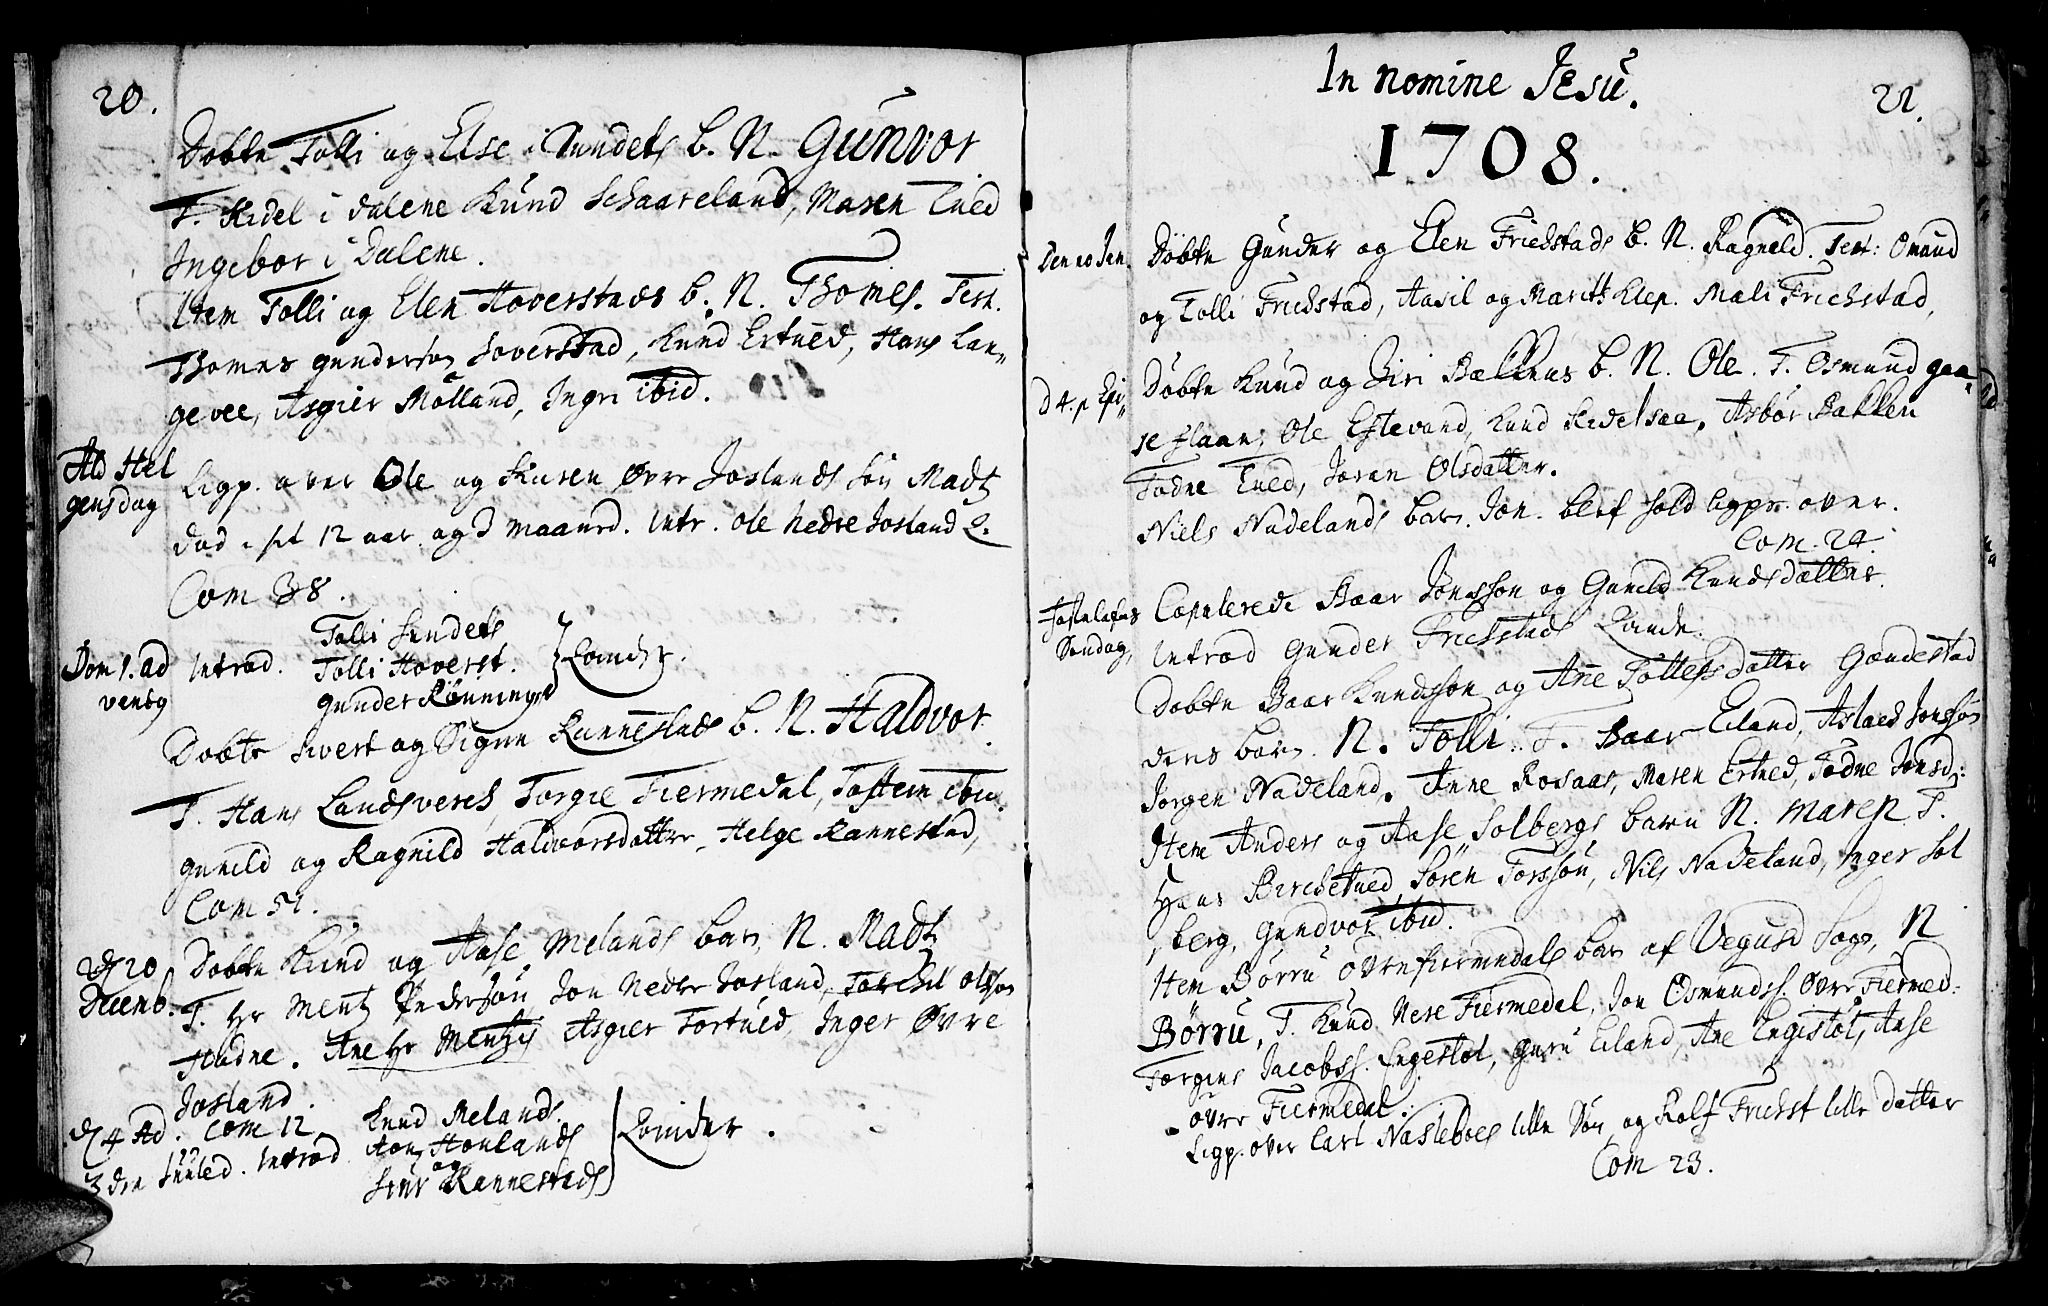 20.
Døbte Tolli og Else i Sundets b. N. Gunvor
T. Kidel i Dalene Knud Schaareland, Maren Tued
Ingebor i Dalene.
Item Tolli og Elen Hoverstads b. N. Thomes. Test.
Thomes gunderson Hoverstad, Knud Ertued, Hans Lan„
gevee, Asgier Mölland, Ingri ibid.
Ald Hel
gensdag
Ligp. over Ole og Karen Øvre Joslands søn Madz
død i sit 12 aar og maaned. Intr. Ole Nedre Josland Q.
Com 38.
Dom 1. ad
ventq
Introd.
Tolli Sundets
Tolli Hoverst.
Gunder Rønninger
Qvinder.
Døbte Sivert og Signe Rannestads b. N. Haldvor.
T. Hans Landsverch, Torgie Fiermedal, Tostein ibid.
Gunild og Ragnild Haldvorsdatter, Helge Rannestad,
Com 51.
D 20
Decemb.
Døbte Knud og Aase Melands barn, N. Madz
T. Hr Mentz Pedersøn, Jon Nedre Josland, Torchel Olsøn
Hadne. Ane Hr Mentzis Asgier Tortued, Inger Øvre
Josland.
D 4 Ad. Com 12
3 den Juuled. Introd
Knud Melands.
Aon Honlands
og
Siur Rannestads
Qvinder.
In nomine Jesu.
21.
1708.
Den 10 Jan.
Döbte Gunder og Elen Frichstads b. N. Ragnild. Test: Omund
og Tolli Frichstad, Aasil og Marith Klep. Mali Frichstad,
D 4. p Epi„
Döbte Knud og Siri Bakkens b. N. Ole. T. Osmund gaa„
seflaan, Ole Estevand, Knud Kidelsaa, Asbör Bakken
Todne Tued, Joran Olsdatter.
Niels Nadelands barn. Jon. blef hold ligpr. over.
Com. 24.
Fastelafns
Søndag,
Copulerede Baar Jonsson og Gunild Knudsdatter.
Introd Gunder Frichstads Qvinde.
Döbte Baar Knudsson og Ane Tollefsdatter Gondestad
dens barn. N. Tolli. T. Baar Eiland, Aslaed Jonssøn
Jorgen Nadeland. Anne Rosaas, Maren Ertued, Todne Jonsd:
Item Anders og Aase Solbergs barn N. Maren T.
Hans Birchetued, Sören Torssön, Nils Nadeland, Inger Sol
berg, Gundvor ibid.
Item Börru övrefiermedals barn af Vegusd Sogn, N
Börru, T. Knud Nere Fiermedal, Jon Osmunds. Øvre Fiermed:
Torgius Jacobss. Engestöl, Guru Eiland, Ane Engistöl, Aase
övre Fiermedal.
Ligp. over Carl Nasleboes lille Søn og Rolf Frichst lille datter
Com 23.